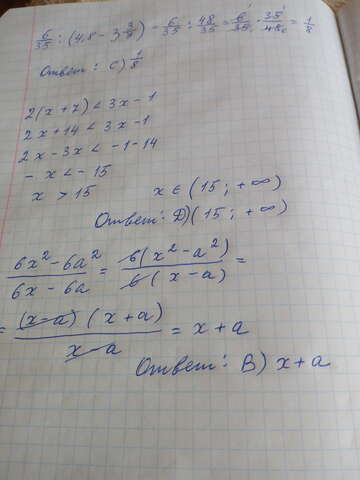 6/35 : (4,8 - 3 3/7) = 6/35 : 48/35 = 6/35 · 35/48 = 1/8
Ответ: C) 1/8
2(x+7) < 3x - 1
2x + 14 < 3x - 1
2x - 3x < -1 - 14
- x < - 15
x > 15 x ∈ (15; +∞)
Ответ: D) (15; +∞)
6x² - 6a² / 6x - 6a = 6(x² - a²) / 6(x - a) =
= (x - a)(x + a) / x - a = x + a
Ответ: B) x + a